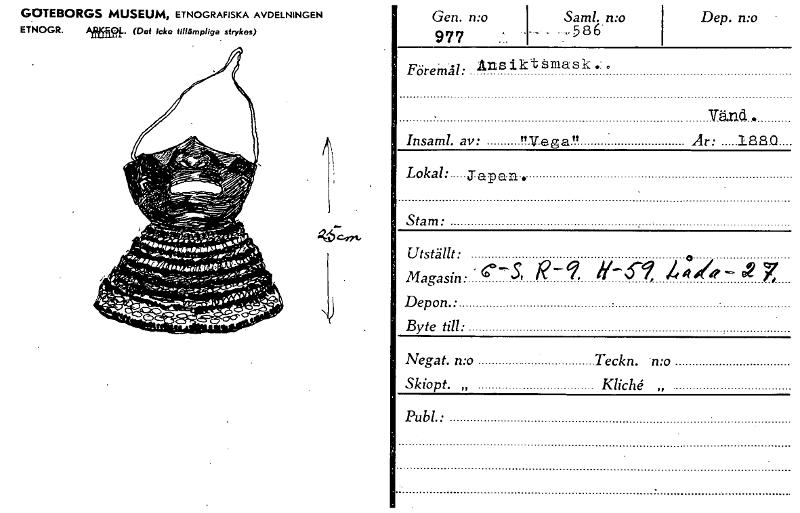 GÖTEBORGS MUSEUM, ETNOGRAFISKA AVDELNINGEN
ETNOGR. ARKEOL. (Det icke tillämpliga strykes)
25cm
Gen. n:o Saml. n:o Dep. n:o
977 586
Föremål: Ansiktsmask..
Vänd.
Insaml. av: "Vega" År: 1880
Lokal: Japan.
Stam:
Utställt:
Magasin: 6-S. R-9. H-59. Låda-27.
Depon.:
Byte till:
Negat. n:o Teckn. n:o
Skiopt. „ Kliché „
Publ.: